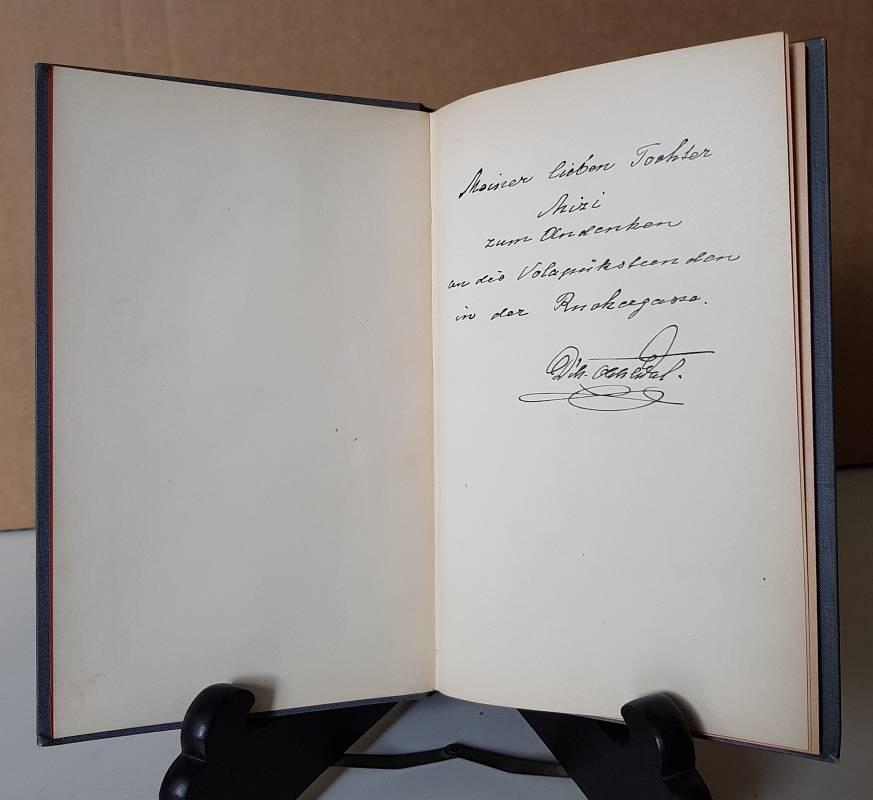 Meiner lieben Tochter
Mizi
zum Andenken
an die Volapükstunden
in der